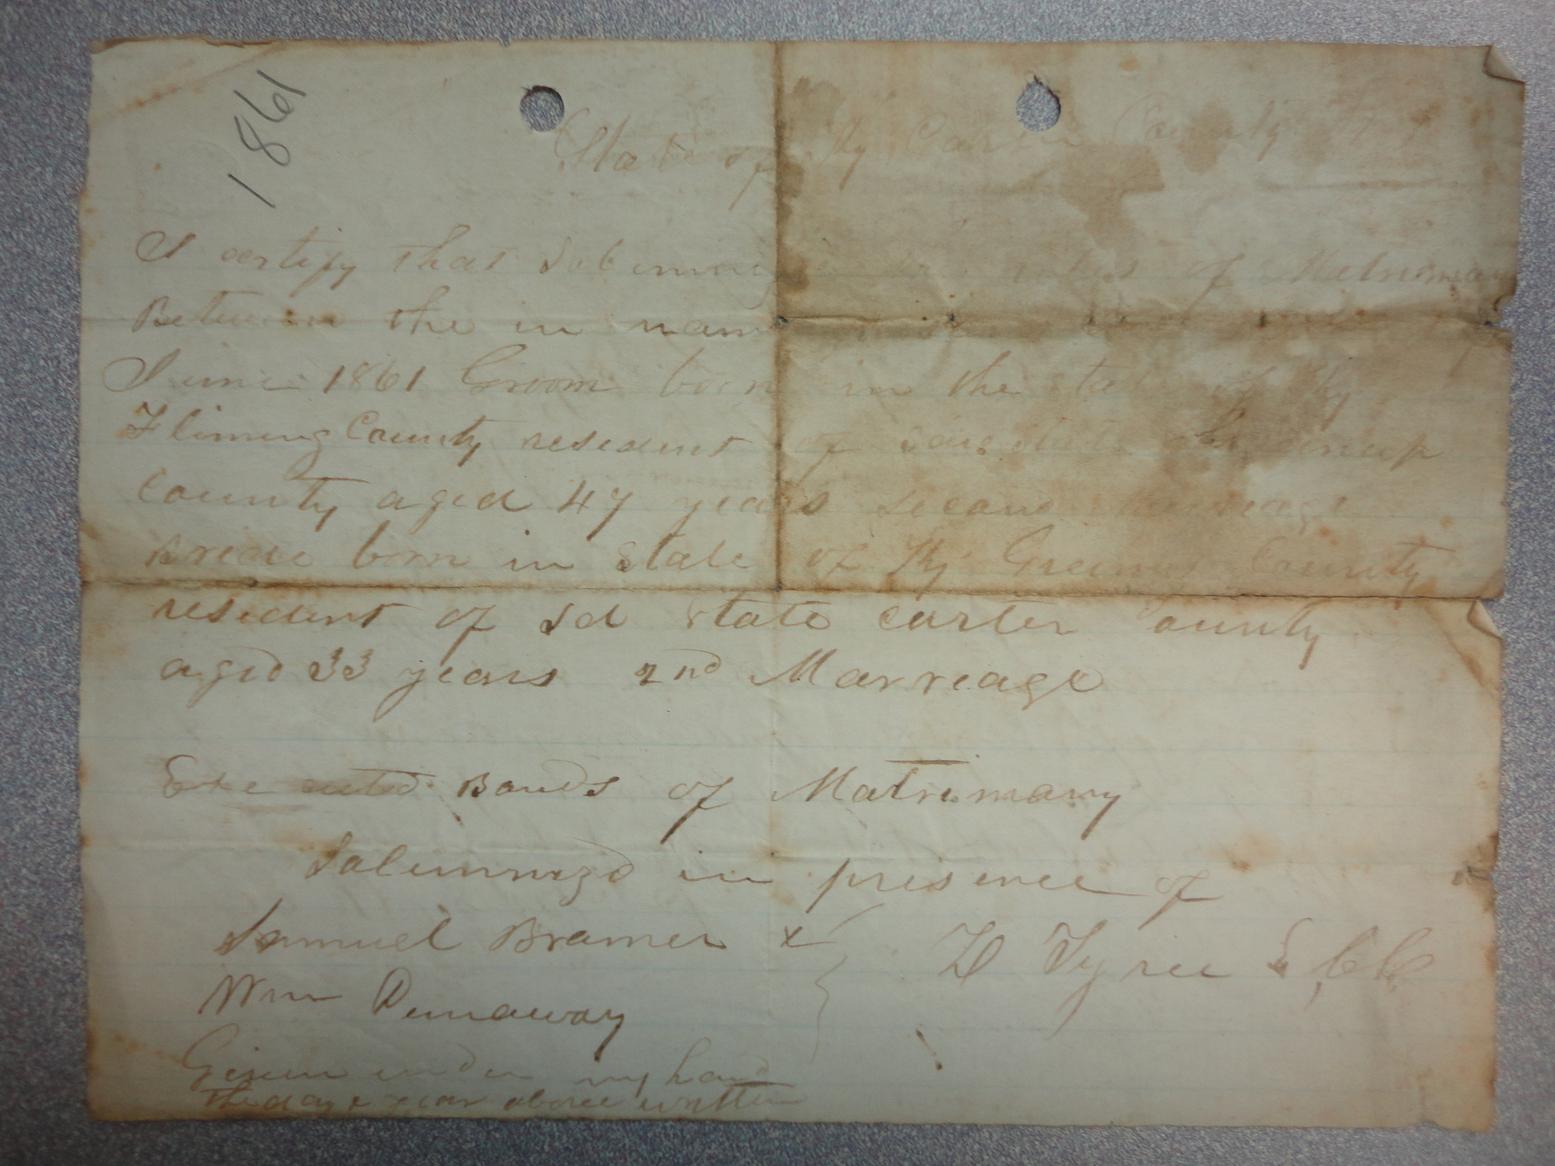 1861
State of Ky Carter County
I certify that Solimniz rites of Matrimony
Between the in nam
June 1861 Groom born in the state of Ky
Fliming County resident of said state
County aged 47 years second marriage
Bride born in State of Ky Greenup County
resident of sd state Carter County
aged 33 years 2nd Marreage
Executed Bands of Matrimony
Solimnizd in presence of
Samuel Bramer x
Z Tyree
Wm Dunaway
Given under my hand
the day & year above written